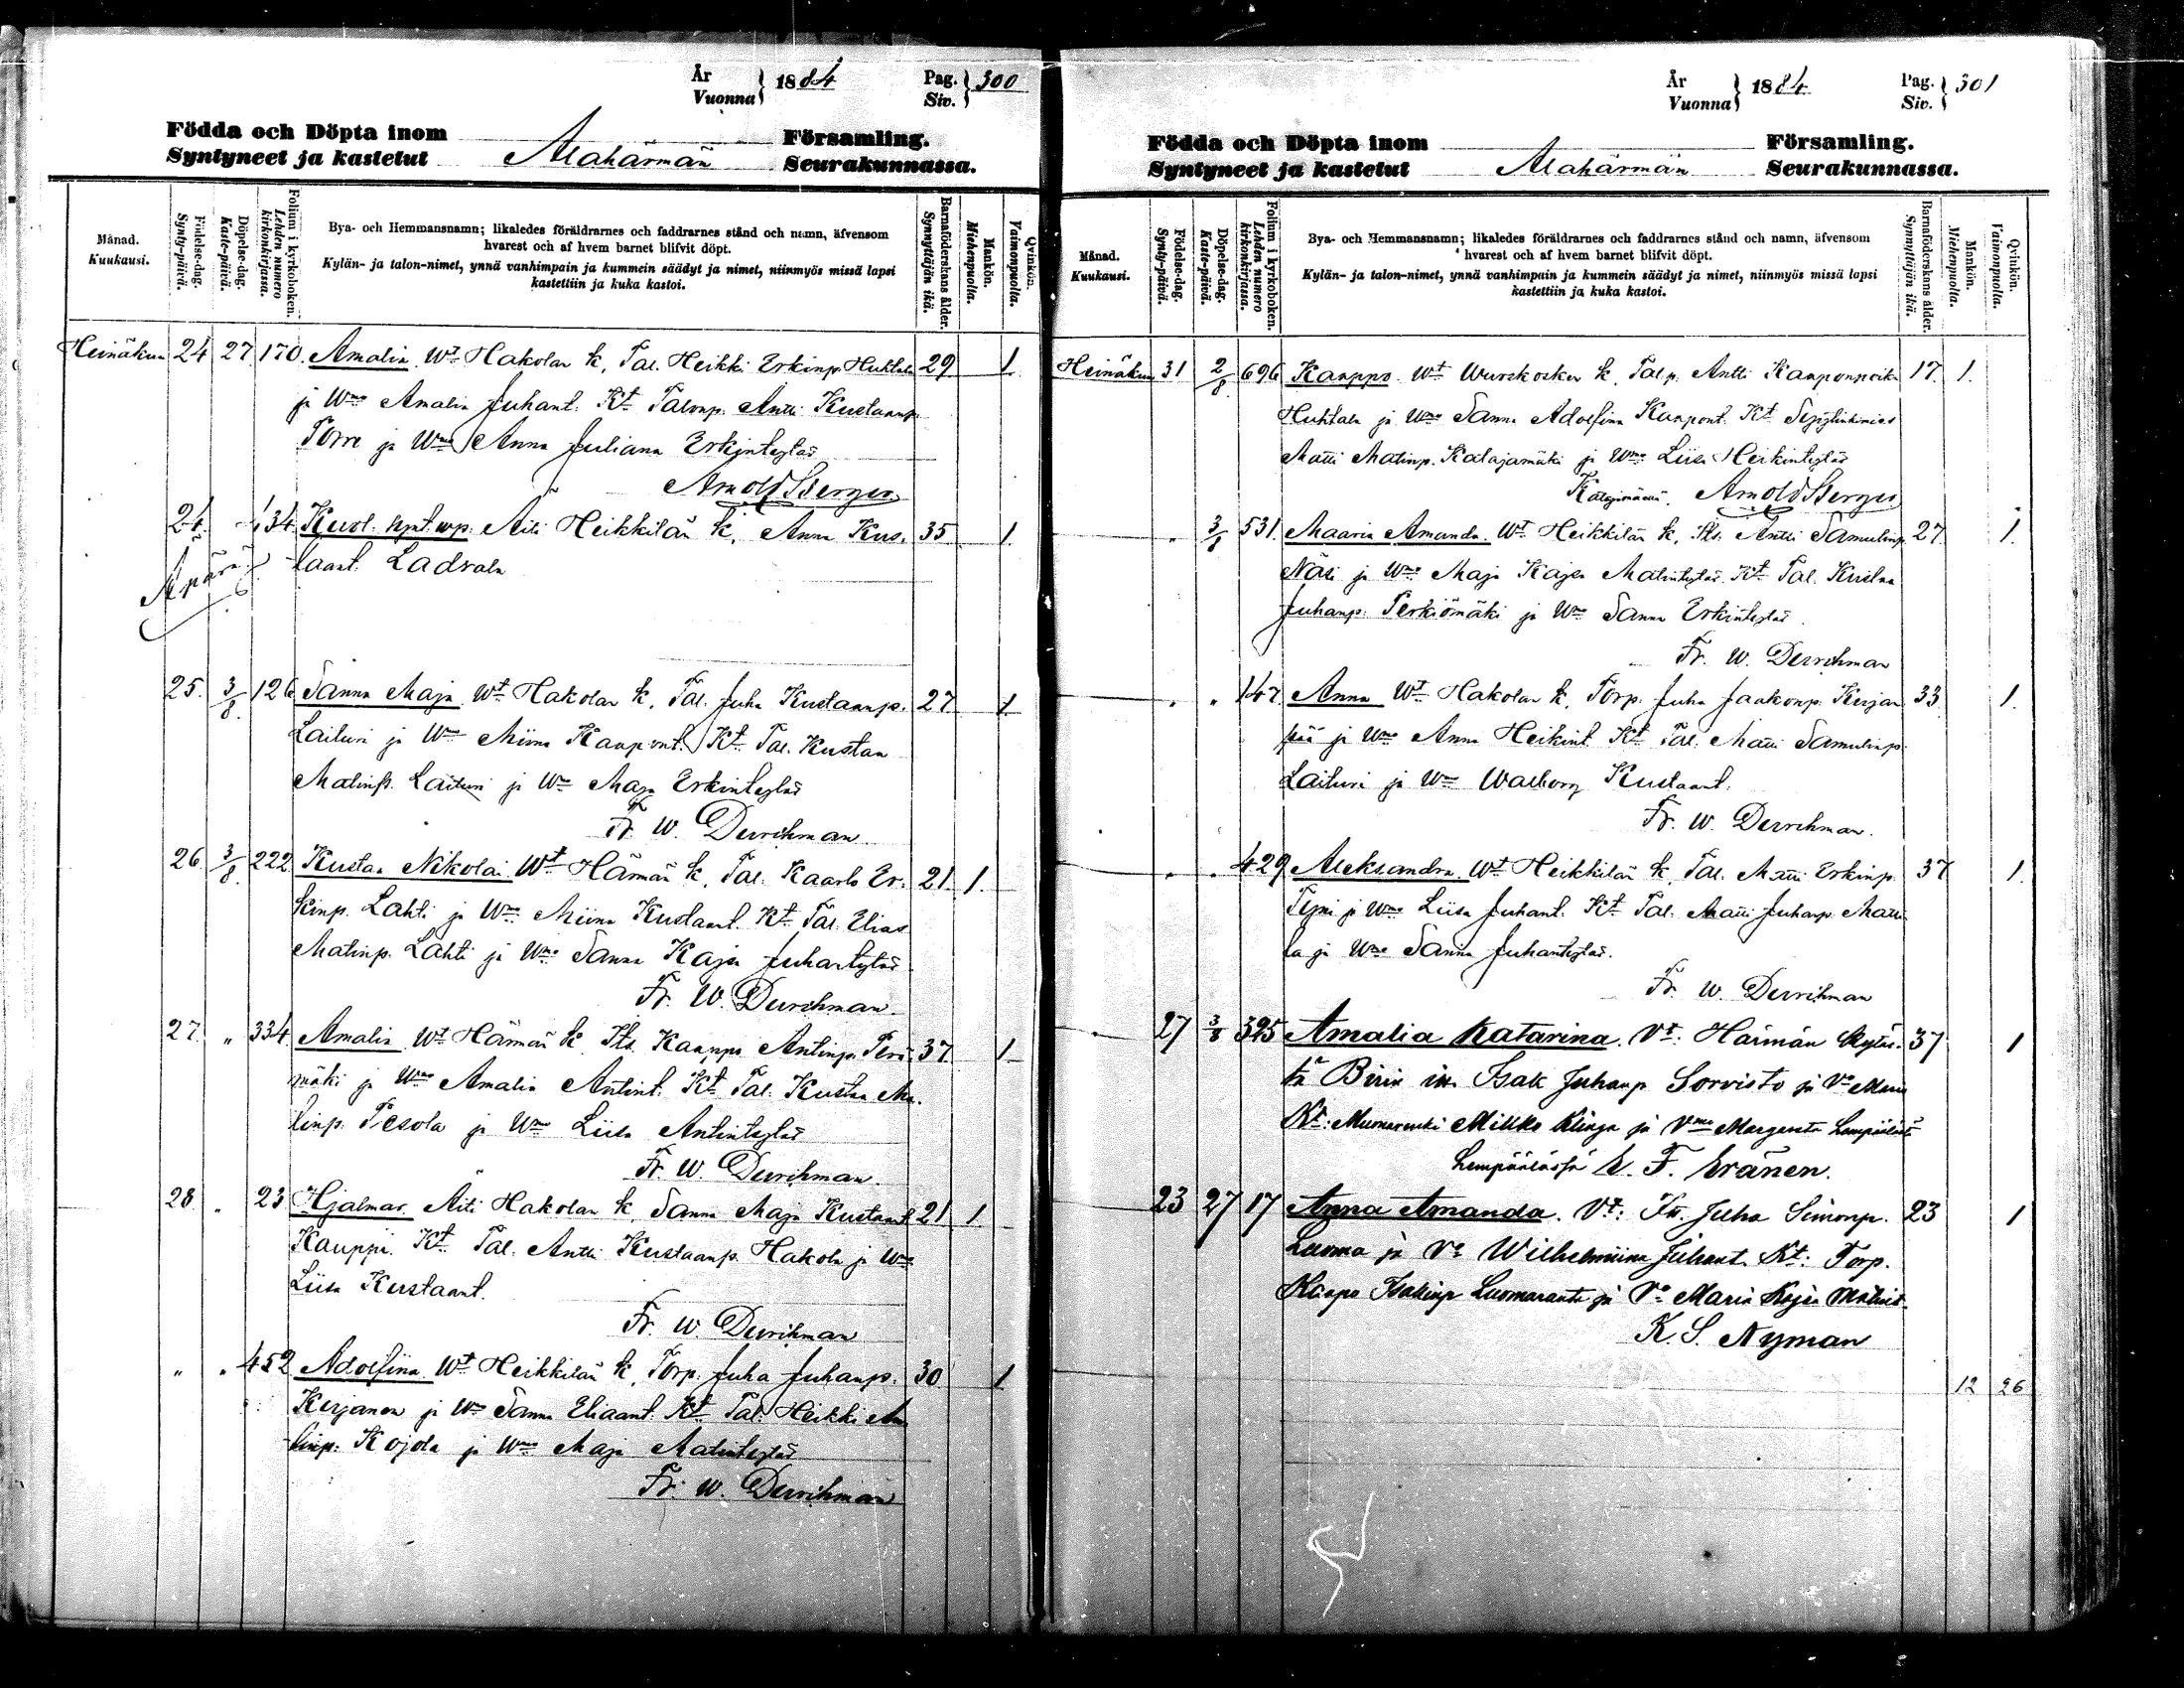 År
Vuonna } 1884
Pag.
Siv. } 300
Födda och Döpta inom
Syntyneet ja kastetut
Alahärmän
Församling.
Seurakunnassa.
Månad.
Kuukausi.
Födelse-dag.
Synty-päivä.
Döpelse-dag.
Kaste-päivä.
Folium i kyrkoboken.
Lehden numero
kirkonkirjassa.
Bya- och Hemmansnamn; likaledes föräldrarnes och faddrarnes stånd och namn, äfvensom
hvarest och af hvem barnet blifvit döpt.
Kylän- ja talon-nimet, ynnä vanhimpain ja kummein säädyt ja nimet, niinmyös missä lapsi
kastettiin ja kuka kastoi.
Barnaföderskans ålder.
Synnyttäjän ikä.
Mankön.
Miehenpuolta.
Qvinkön.
Vaimonpuolta.
Heinäkun 24 27 170. Amalia Wt Hakolan k, Tal. Heikki Erkinp. Huhtala 29 1
ja Wmo Amalia Juhant. Kt Talonp. Antti Kustaanp.
Porre ja Wmo Anna Juliana Erkintytär
Arnold Berger
24. 134 Kuol. synt. wp. Äiti Heikkilän k, Anna Kus- 35 1.
Äpärä taant. Ladvala
25. 3/8 126 Sanna Maja Wt Hakolan k, Tal. Juha Kustaanp. 27 1
Laituri ja Wmo Miina Kaapont. Kt Tal. Kustaa
Matinp. Laituri ja Wmo Maja Erkintytär
Fr. W. Durchman
26 3/8 222 Kustaa Nikolai Wt Hämän k, Tal. Kaarlo Er- 21 1.
kinp. Lahti ja Wmo Miina Kustaant. Kt Tal. Elias
Matinp. Lahti ja Wmo Sanna Kajsa Juhantytär
Fr. W. Durchman
27. " 334 Amalia Wt Hämän k, Its. Kaappo Antinp. Perä- 37 1
mäki ja Wmo Amalia Antint. Kt Tal. Kustaa Ma-
tinp. Pesola ja Wmo Liisa Antintytär
Fr. W. Durchman
28 " 23 Hjalmar. Äiti Hakolan k, Sanna Maja Kustaant. 21 1
Kauppi. Kt Tal. Antti Kustaanp. Hakola ja Wmo
Liisa Kustaant.
Fr. W. Durchman
" " 452 Adolfina Wt Heikkilän k, Torp. Juha Juhanp. 30 1
Kerjanen ja Wmo Sanna Eliaant. Kt Tal. Heikki Ma-
tinp. Kojola ja Wmo Maja Matintytär
Fr. W. Durchman
År
Vuonna } 1884
Pag.
Siv. } 301
Födda och Döpta inom
Syntyneet ja kastetut
Alahärmän
Församling.
Seurakunnassa.
Månad.
Kuukausi.
Födelse-dag.
Synty-päivä.
Döpelse-dag.
Kaste-päivä.
Folium i kyrkoboken.
Lehden numero
kirkonkirjassa.
Bya- och Hemmansnamn; likaledes föräldrarnes och faddrarnes stånd och namn, äfvensom
hvarest och af hvem barnet blifvit döpt.
Kylän- ja talon-nimet, ynnä vanhimpain ja kummein säädyt ja nimet, niinmyös missä lapsi
kastettiin ja kuka kastoi.
Barnaföderskans ålder.
Synnyttäjän ikä.
Mankön.
Miehenpuolta.
Qvinkön.
Vaimonpuolta.
Heinäkun 31 2/8 696 Kauppo Wt Wuoskosken k, Tal.p. Antti Kaaponpoika 17. 1.
Huhtala ja Wmo Sanna Adolfina Kaapont. Kt
Matti Matinp. Katajamäki ja Wmo Liisa Heikintytär
Katajamäessä. Arnold Berger
" 3/8 531 Maaria Amanda. Wt Heikkilän k, Its. Antti Samulinp. 27 1.
Näsi ja Wmo Maja Kajsa Matintytär. Kt Tal. Kustaa
Juhanp. Perkiömäki ja Wmo Sanna Erkintytär.
Fr. W. Durchman
" " 147 Anna Wt Hakolan k, Torp. Juha Jaakonp. Kerjan- 33 1.
pää ja Wmo Anna Heikint. Kt Tal. Matti Samulinp.
Laituri ja Wmo Walborg Kustaant.
Fr. W. Durchman.
" " 429 Aleksandra. Wt Heikkilän k, Tal. Matti Erkinp. 37 1.
ja Wmo Liisa Juhant. Kt Tal. Matti Juhanp. Matti-
la ja Wmo Sanna Juhantytär.
Fr. W. Durchman
27 3/8 325 Amalia Katarina. Vt: Härmän kyläs- 37 1
tä Isak Juhanp. Sorvisto ja Vo Maria
Kt: Mikko Klinga ja Vmo Margareta Lempäälästä
Lempäälässä E. F. Eränen.
23 27 17 Anna Amanda. Vt: Juha Simonp. 23 1
Luoma ja Vo Wilhelmiina Juhant. Kt: Torp.
Kaapo Isakinp. Luomaranta ja Vo Maria Kajsa Matint.
K. S. Nyman
12 26